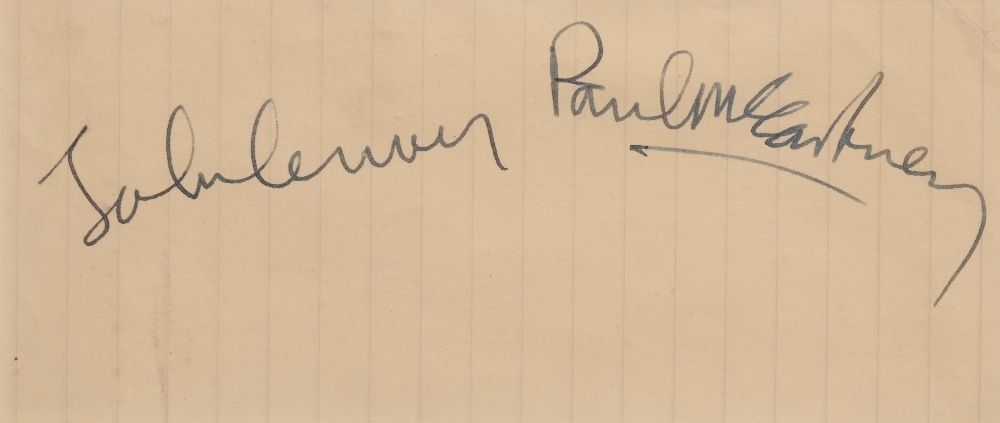 John Lennon
Paul McCartney